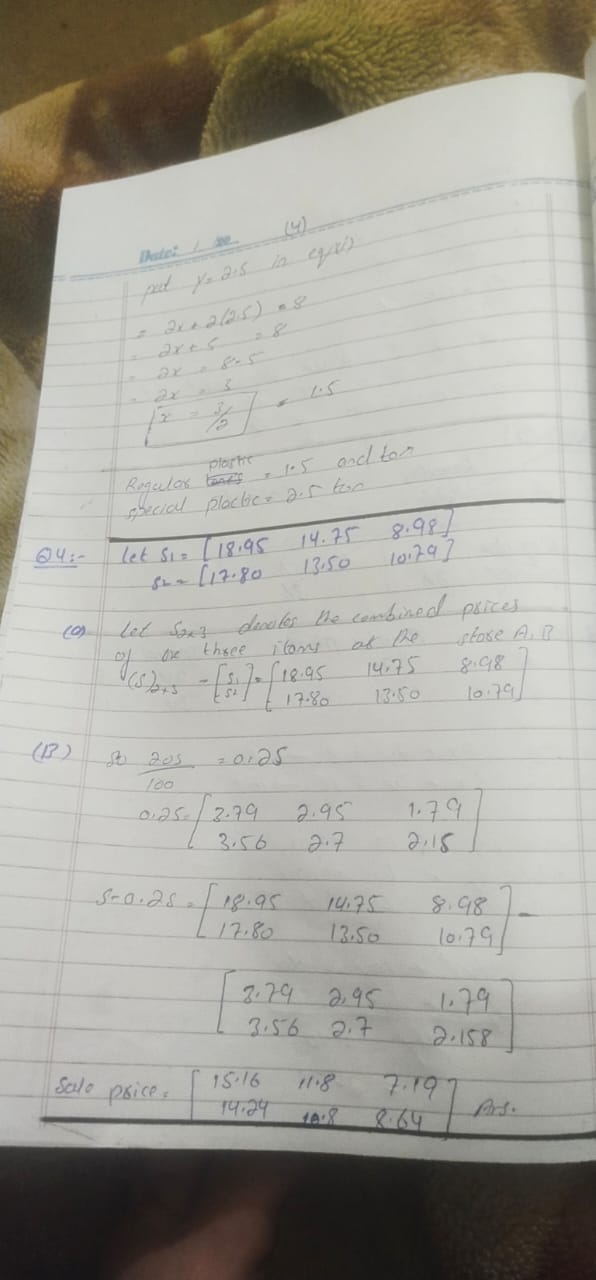 Date:
(4)
put y = 2.5 in eq(i)
= 2x + 2(2.5) = 8
= 2x + 5 = 8
= 2x = 8-5
= 2x = 3
[x = 3/2] = 1.5
plastic
Regular = 1.5 and ton
special plactic = 2.5 ton
Q4:- let S1 = [18.95 14.75 8.98]
S2 = [17.80 13.50 10.79]
(a) let S2x3 denotes the combined prices
of three items at the store A, B
(S)2x3 = [S1 S2] = [18.95 14.75 8.98
17.80 13.50 10.79]
(B) 20S/100 = 0.2S
0.2S = [3.79 2.95 1.79
3.56 2.7 2.15]
S-0.2S = [18.95 14.75 8.98
17.80 13.50 10.79] -
[3.79 2.95 1.79
3.56 2.7 2.158]
Sale price = [15.16 11.8 7.19
14.24 10.8 8.64] Ans.